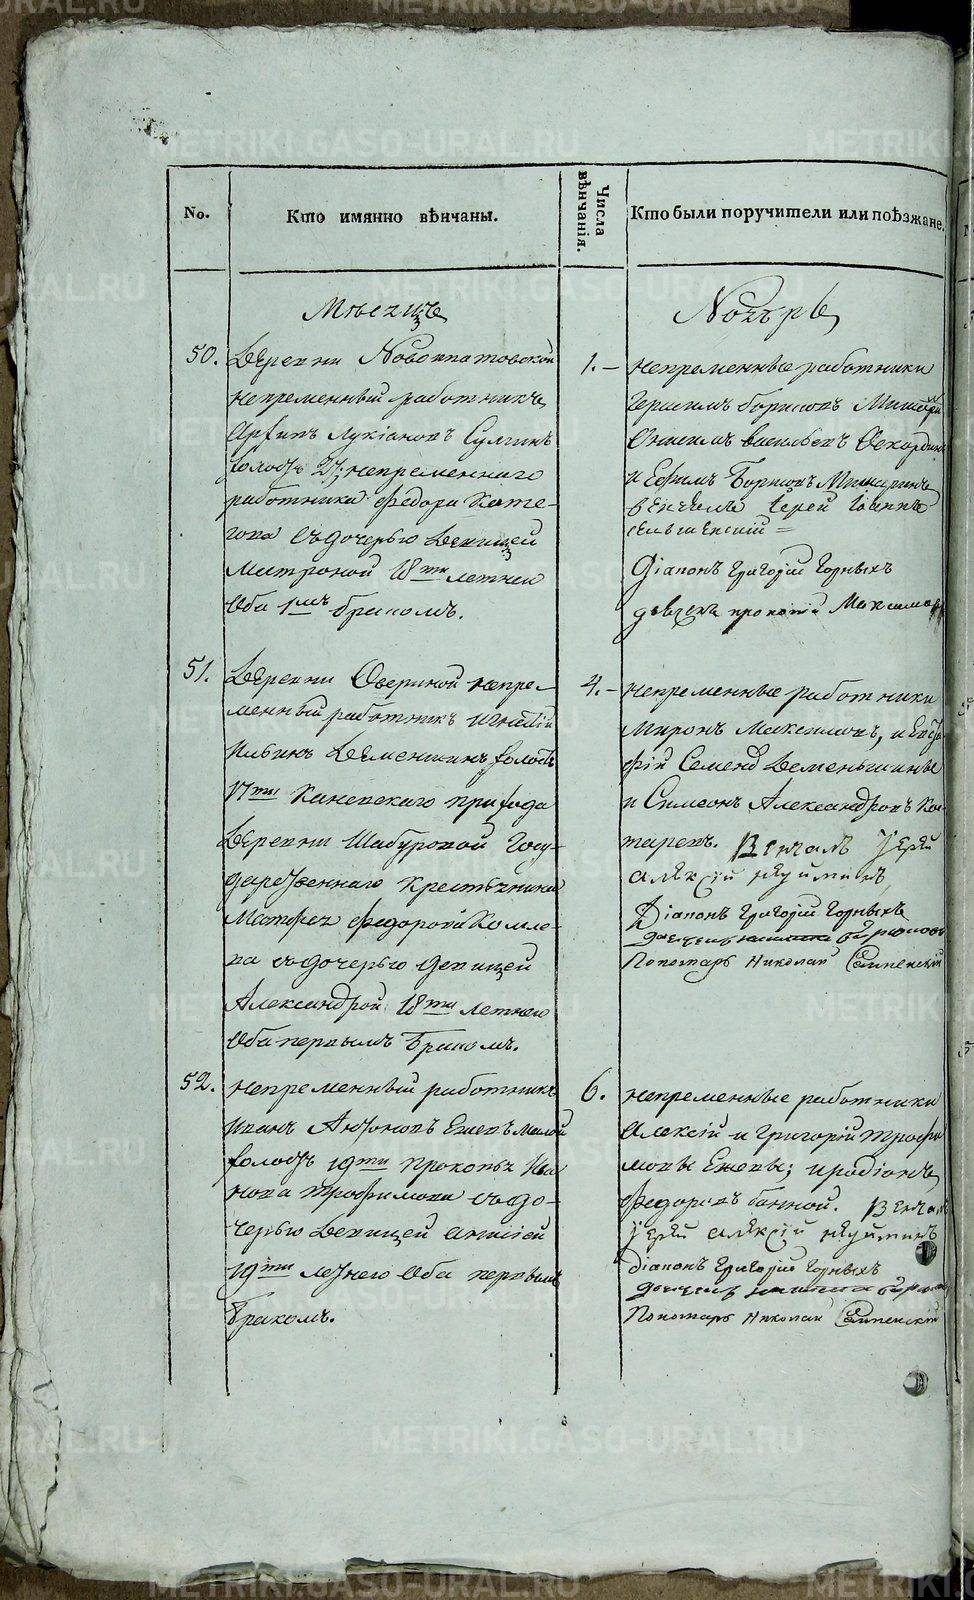 No.
Кто имянно вѣнчаны.
Числа вѣнчанія.
Кто были поручители или поѣзжане.
Мѣсяцъ
Ноябрь
50.
Деревни Новоипатовской
непременный работникъ
Архипъ Лукіановъ Сулгинъ
холостъ непременнаго
работника Федора Коте-
гова съ дочерью девицей
Матроной 18ти летней
Оба 1мъ бракомъ.
1.-
непременные работники
Герасимъ Борисовъ
Онисимъ Васильевъ
и Ефимъ Борисовъ
венчалъ Іерей Іоаннъ
Діаконъ Григорій Горныхъ
дьячекъ Прокопій
51.
Деревни непре-
менный работникъ Игнатій
Ильинъ Деменшинъ холостъ
17ти прихода
деревни Шабуровой Госу-
дарственнаго крестьянина
Матфея Федорова Комле-
ва съ дочерью девицей
Александрой 18ти летнею
Оба первымъ бракомъ.
4.-
непременные работники
Миронъ Максимовъ, и Евста-
фій Деменьшины
и Симеонъ Александровъ Ко-
таревъ. Венчалъ Іерей
Алексій
Діаконъ Григорій Горныхъ
Пономарь Николай
52.
непременный работникъ
Иванъ Антоновъ Ежевъ
холостъ 19ти Прокопья
Трофимова съ до-
черью девицей Анисіей
19ти летнего Оба первымъ
бракомъ.
6.
непременные работники
Алексій и Григорій Трофи-
мовы Ежевы; и родіонъ
Федоровъ Банной. Венчал
Іерей Алексій
Діаконъ Григорій Горныхъ
Пономарь Николай
METRIKI.GASO-URAL.RU